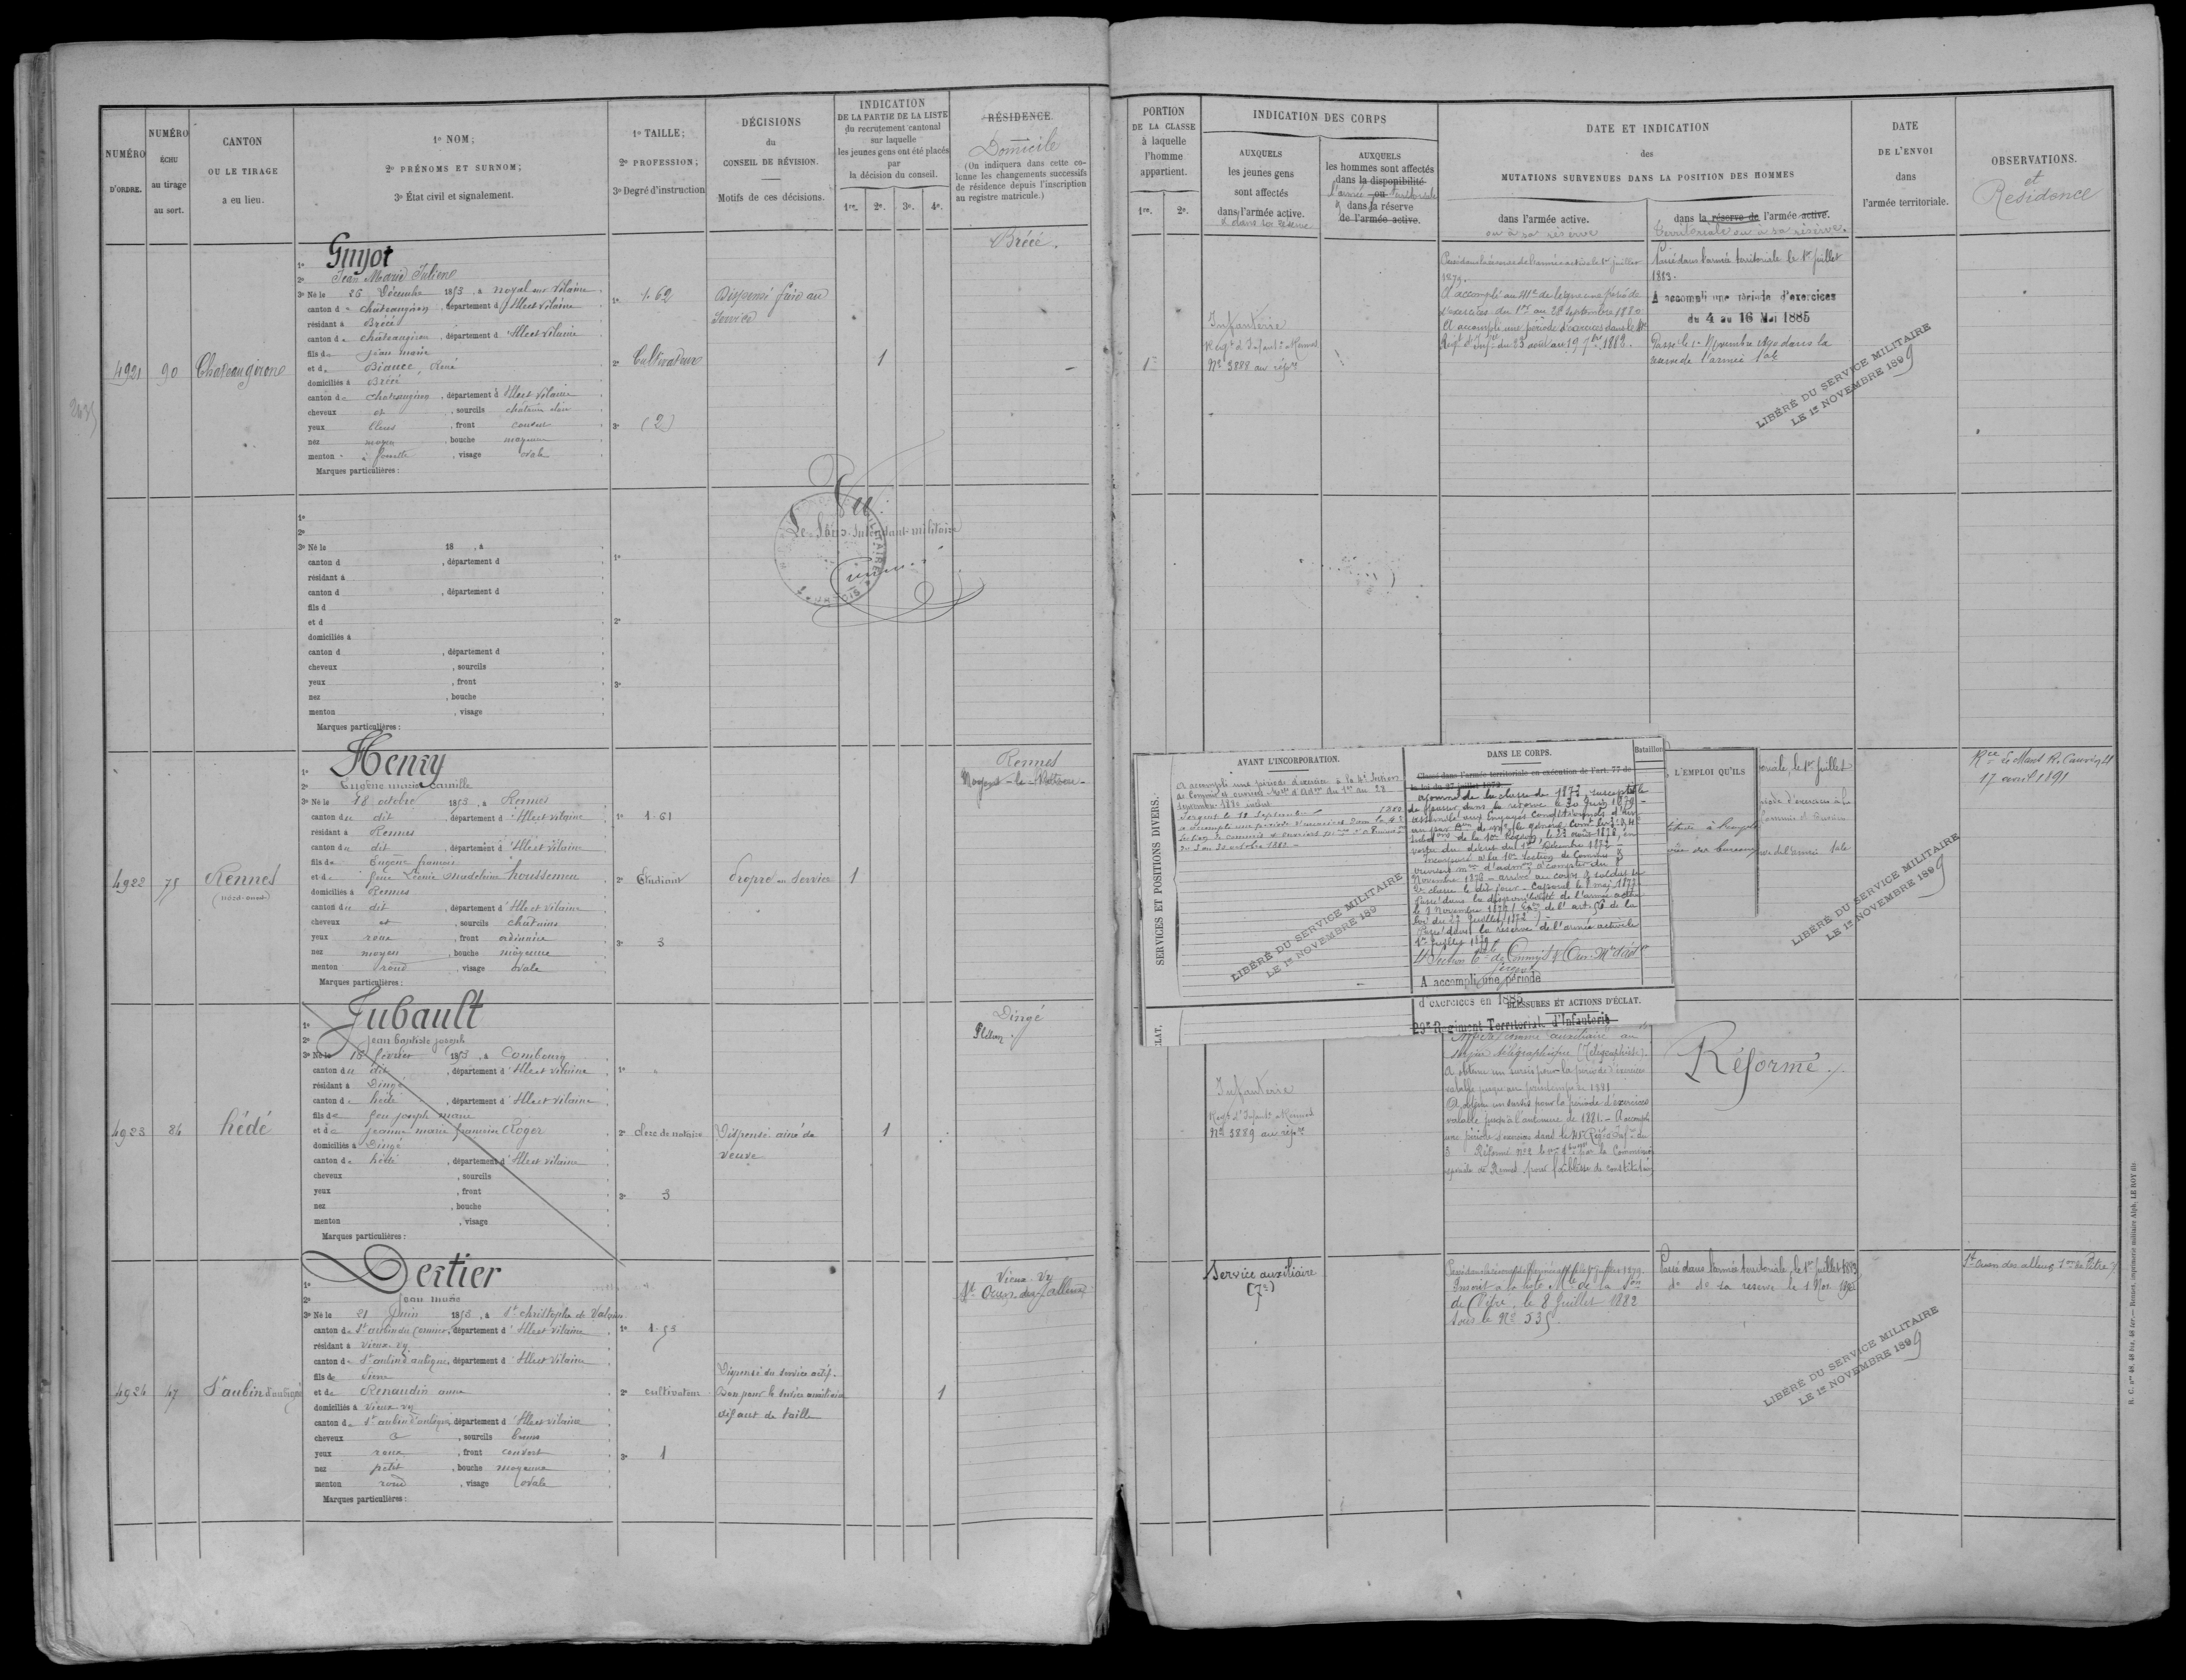 NUMÉRO
D'ORDRE.
NUMÉRO
ÉCHU
au tirage
au sort.
CANTON
OU LE TIRAGE
a eu lieu.
1º NOM;
2º PRÉNOMS ET SURNOM;
3º État civil et signalement.
1º TAILLE;
2º PROFESSION;
3º Degré d'instruction
DÉCISIONS
du
CONSEIL DE RÉVISION.
Motifs de ces décisions.
INDICATION
DE LA PARTIE DE LA LISTE
du recrutement cantonal
sur laquelle
les jeunes gens ont été placés
par
la décision du conseil.
1re. 2e. 3e. 4e.
RÉSIDENCE.
Domicile
(On indiquera dans cette co-
lonne les changements successifs
de résidence depuis l'inscription
au registre matricule.)
4921
90
Chateaugirone
1º Guyot
2º Jean Marie Julien
3º Né le 26 Décembre 1853, à Noyal sur Vilaine
canton d Chateaugiron, département d'Ille et Vilaine
résidant à Brécé
canton de Châteaugiron, département d'Ille et Vilaine
fils de Jean marie
et d Biance Renée
domiciliés à Brécé
canton de Chateaugiron, département d'Ille et Vilaine
cheveux et, sourcils châtain clair
yeux bleus, front couvert
nez moyen, bouche moyenne
menton à fossette, visage ovale
Marques particulières:
1º 1.62
2º Cultivateur
3º (2)
Dispensé frère au
service
1
Brécé.
1º
2º
3º Né le 18 , à
canton d , département d
résidant à
canton d , département d
fils d
et d
domiciliés à
canton d , département d
cheveux , sourcils
yeux , front
nez , bouche
menton , visage
Marques particulières:
1º
2º
3º
Vu
Le Sous-Intendant militaire
4922
75
Rennes
(nord-ouest)
1º Henry
2º Eugène marie Camille
3º Né le 18 octobre 1853, à Rennes
canton du dit, département d'Ille et Vilaine
résidant à Rennes
canton du dit, département d'Ille et Vilaine
fils de Eugène françois
et de feue Léonie madeleine houssemen
domiciliés à Rennes
canton du dit, département d'Ille et Vilaine
cheveux et, sourcils chatains
yeux roux, front ordinaire
nez moyen, bouche moyenne
menton rond, visage ovale
Marques particulières:
1º 1.61
2º Etudiant
3º 3
Propre au Service
1
Rennes
Nogent-le-Rotrou
4923
84
hédé
1º Jubault
2º jean baptiste joseph
3º Né le 18 février 1853, à Combourg
canton du dit, département d'Ille et Vilaine
résidant à Dingé
canton de hédé, département d'Ille et Vilaine
fils de feu joseph marie
et de jeanne marie françoise Roger
domiciliés à Dingé
canton de hédé, département d'Ille et Vilaine
cheveux , sourcils
yeux , front
nez , bouche
menton , visage
Marques particulières:
1º
2º clerc de notaire
3º 3
Dispensé ainé de
veuve
1
Dingé
4924
47
St aubin d'aubigné
1º Dertier
2º
3º Né le 21 juin 1853, à St christophe de Valains
canton de St aubin du Cormier, département d'Ille et Vilaine
résidant à Vieux vy
canton de St aubin d'aubigné, département d'Ille et Vilaine
fils de Pierre
et de Renaudin anne
domiciliés à Vieux vy
canton de St aubin d'aubigné, département d'Ille et Vilaine
cheveux et, sourcils bruns
yeux roux, front couvert
nez petit, bouche moyenne
menton rond, visage ovale
Marques particulières:
1º 1.53
2º cultivateur
3º 1
Dispensé du service actif.
Bon pour le service auxiliaire
défaut de taille
1
Vieux-Vy
St Ouen des alleux
PORTION
DE LA CLASSE
à laquelle
l'homme
appartient.
1re. 2e.
INDICATION DES CORPS
AUXQUELS
les jeunes gens
sont affectés
dans l'armée active.
& dans la réserve
AUXQUELS
les hommes sont affectés
dans la disponibilité
l'armée ou territoriale
& dans la réserve
de l'armée active.
DATE ET INDICATION
des
MUTATIONS SURVENUES DANS LA POSITION DES HOMMES
dans l'armée active.
ou à sa réserve
dans la réserve de l'armée active.
territoriale ou à sa réserve.
DATE
DE L'ENVOI
dans
l'armée territoriale.
OBSERVATIONS.
et
Residence
Infanterie
Regt d'Infant. Rennes
Nº 3888 au répre
Passé dans la réserve de l'armée active le 1er juillet
1879.
A accompli au 41e de ligne une période
d'exercices du 1er au 28 septembre 1880
A accompli une période d'exercices dans le 41e
Regt d'Infie du 23 août au 19 7bre 1882.
Passé dans l'armée territoriale le 1er juillet
1883.
A accompli une période d'exercices
du 4 au 16 Mai 1885
Passé le 1er Novembre 1890 dans la
réserve de l'armée tale
LIBÉRÉ DU SERVICE MILITAIRE
LE 1er NOVEMBRE 1899
SERVICES ET POSITIONS DIVERS.
AVANT L'INCORPORATION.
A accompli une période d'exercice à la 4e Section
de Commis et ouvriers mres d'Admon du 1er au 28
septembre 1880 inclus
Sergent le 18 Septembre 1880
A accompli une période d'exercices dans la 4e
Section de commis et ouvriers
du 3 au 30 octobre 1882
LIBÉRÉ DU SERVICE MILITAIRE
LE 1er NOVEMBRE 189
DANS LE CORPS.
Bataillon
Classé dans l'armée territoriale en exécution de l'art. 77 de
la loi du 27 juillet 1872
de passer dans la réserve le 30 Juin 1879
assimilé aux Engagés Conditionnels d'un
vertu du décret du 1er Décembre 1872
Incorporé à la 10e Section de Commis &
ouvriers mres d'admon à compter du 8
Novembre 1876 - arrivé au corps & soldat de
2e classe le dit jour - Caporal le 8 mai 1877
Passé dans la disponibilité de l'armée active
le 8 Novembre 1877 de l'art. 56 de la
loi du 27 Juillet 1872
Passé dans la réserve de l'armée active le
1er Juillet 1879
A accompli une période
d'exercices en 1885
BLESSURES ET ACTIONS D'ÉCLAT.
29e Régiment Territorial d'Infanterie
L'EMPLOI QU'ILS
Rce Le Mans R. Cauvin 21
17 avril 1891
LIBÉRÉ DU SERVICE MILITAIRE
LE 1er NOVEMBRE 1899
Infanterie
Regt d'Infant. Rennes
Nº 3889 au répre
Affecté comme auxiliaire au
service télégraphique (Télégraphiste).
A obtenu un sursis pour la période d'exercices
valable jusqu'au printemps de 1881
A obtenu un sursis pour la période d'exercices
valable jusqu'à l'automne de 1881. - A accompli
une période d'exercices dans le
spéciale de Rennes pour faiblesse de constitution
Réformé.
Service auxiliaire
(7e)
Passé dans la réserve de l'armée active le 1er juillet 1879.
Inscrit à la liste Mle de la Son
de Pipre, le 8 Juillet 1882
sous le Nº 535
Passé dans l'armée territoriale, le 1er juillet 1883
dº dº sa réserve le 1 Nov.
St Ouen des alleux
LIBÉRÉ DU SERVICE MILITAIRE
LE 1er NOVEMBRE 1899